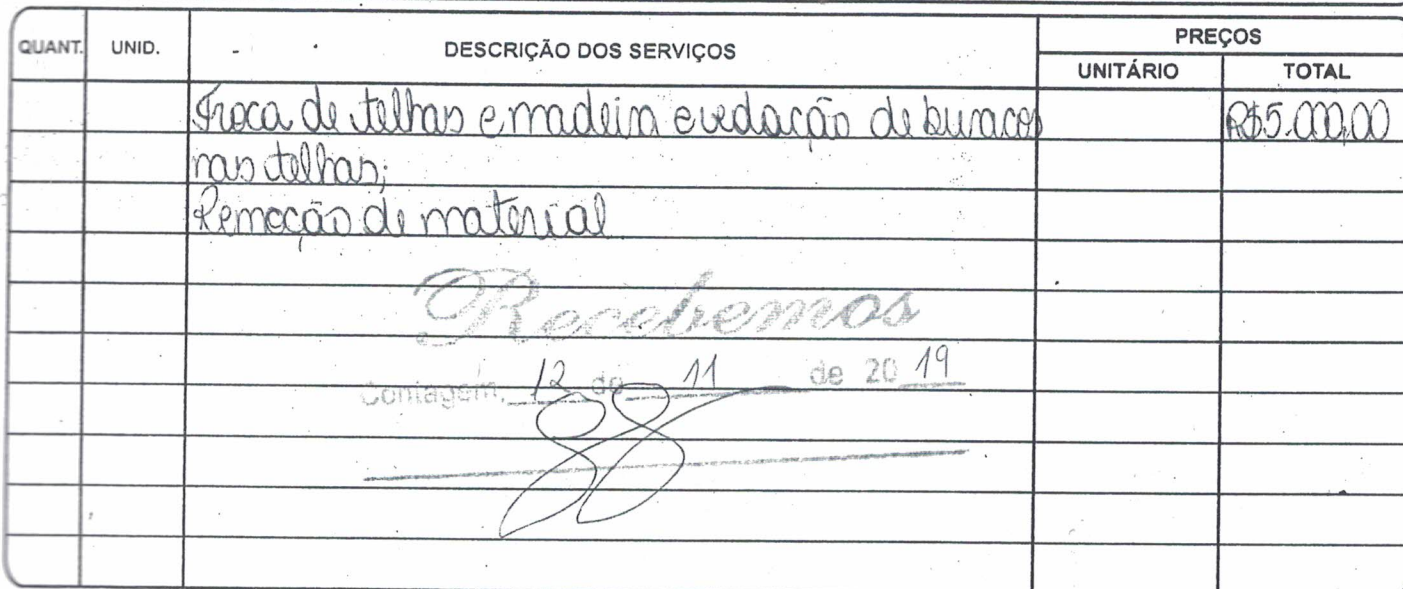 QUANT. UNID. DESCRIÇÃO DOS SERVIÇOS PREÇOS
UNITÁRIO TOTAL
Troca de telhas e madeira e vedação de buracos R$5.000,00
nas telhas;
Remoção de material
Recebemos
Contagem, 12 de 11 de 20 19